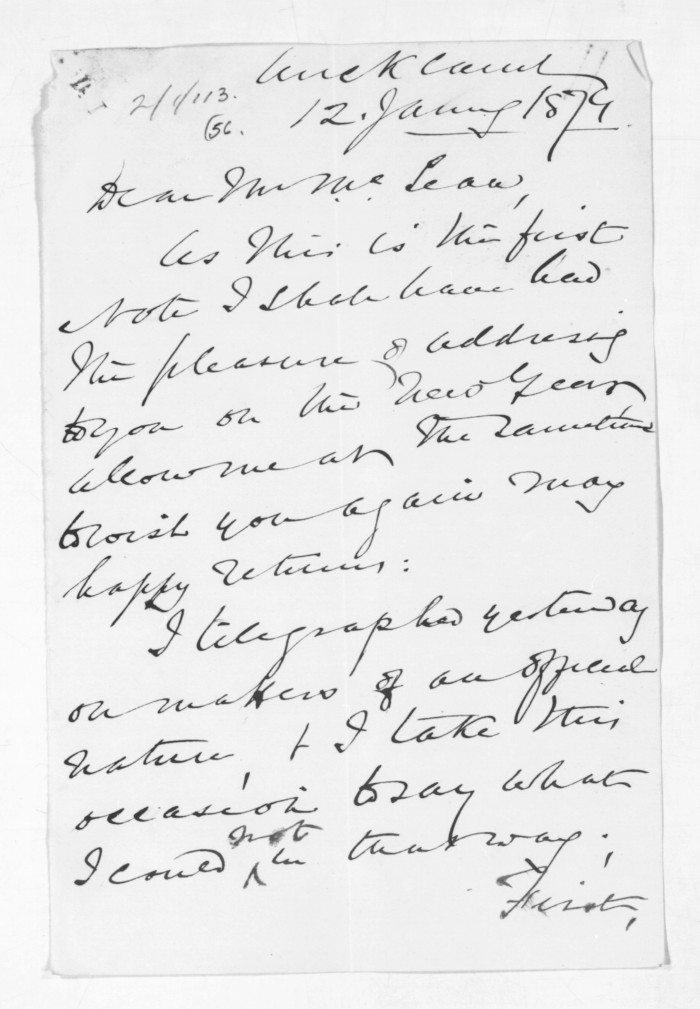 Auckland
2/1/113.
(56.
12. Janury 1874
Dear Mr. McLean,
As this is the first
Note I shall have had
the pleasure of addressing
to you on the New Year
allow me at the same time
to wish you again may
happy returns:
I telegraphed yesterday
on matters of an official
nature, & I take this
occasion to say what
I could not in that way;
First,